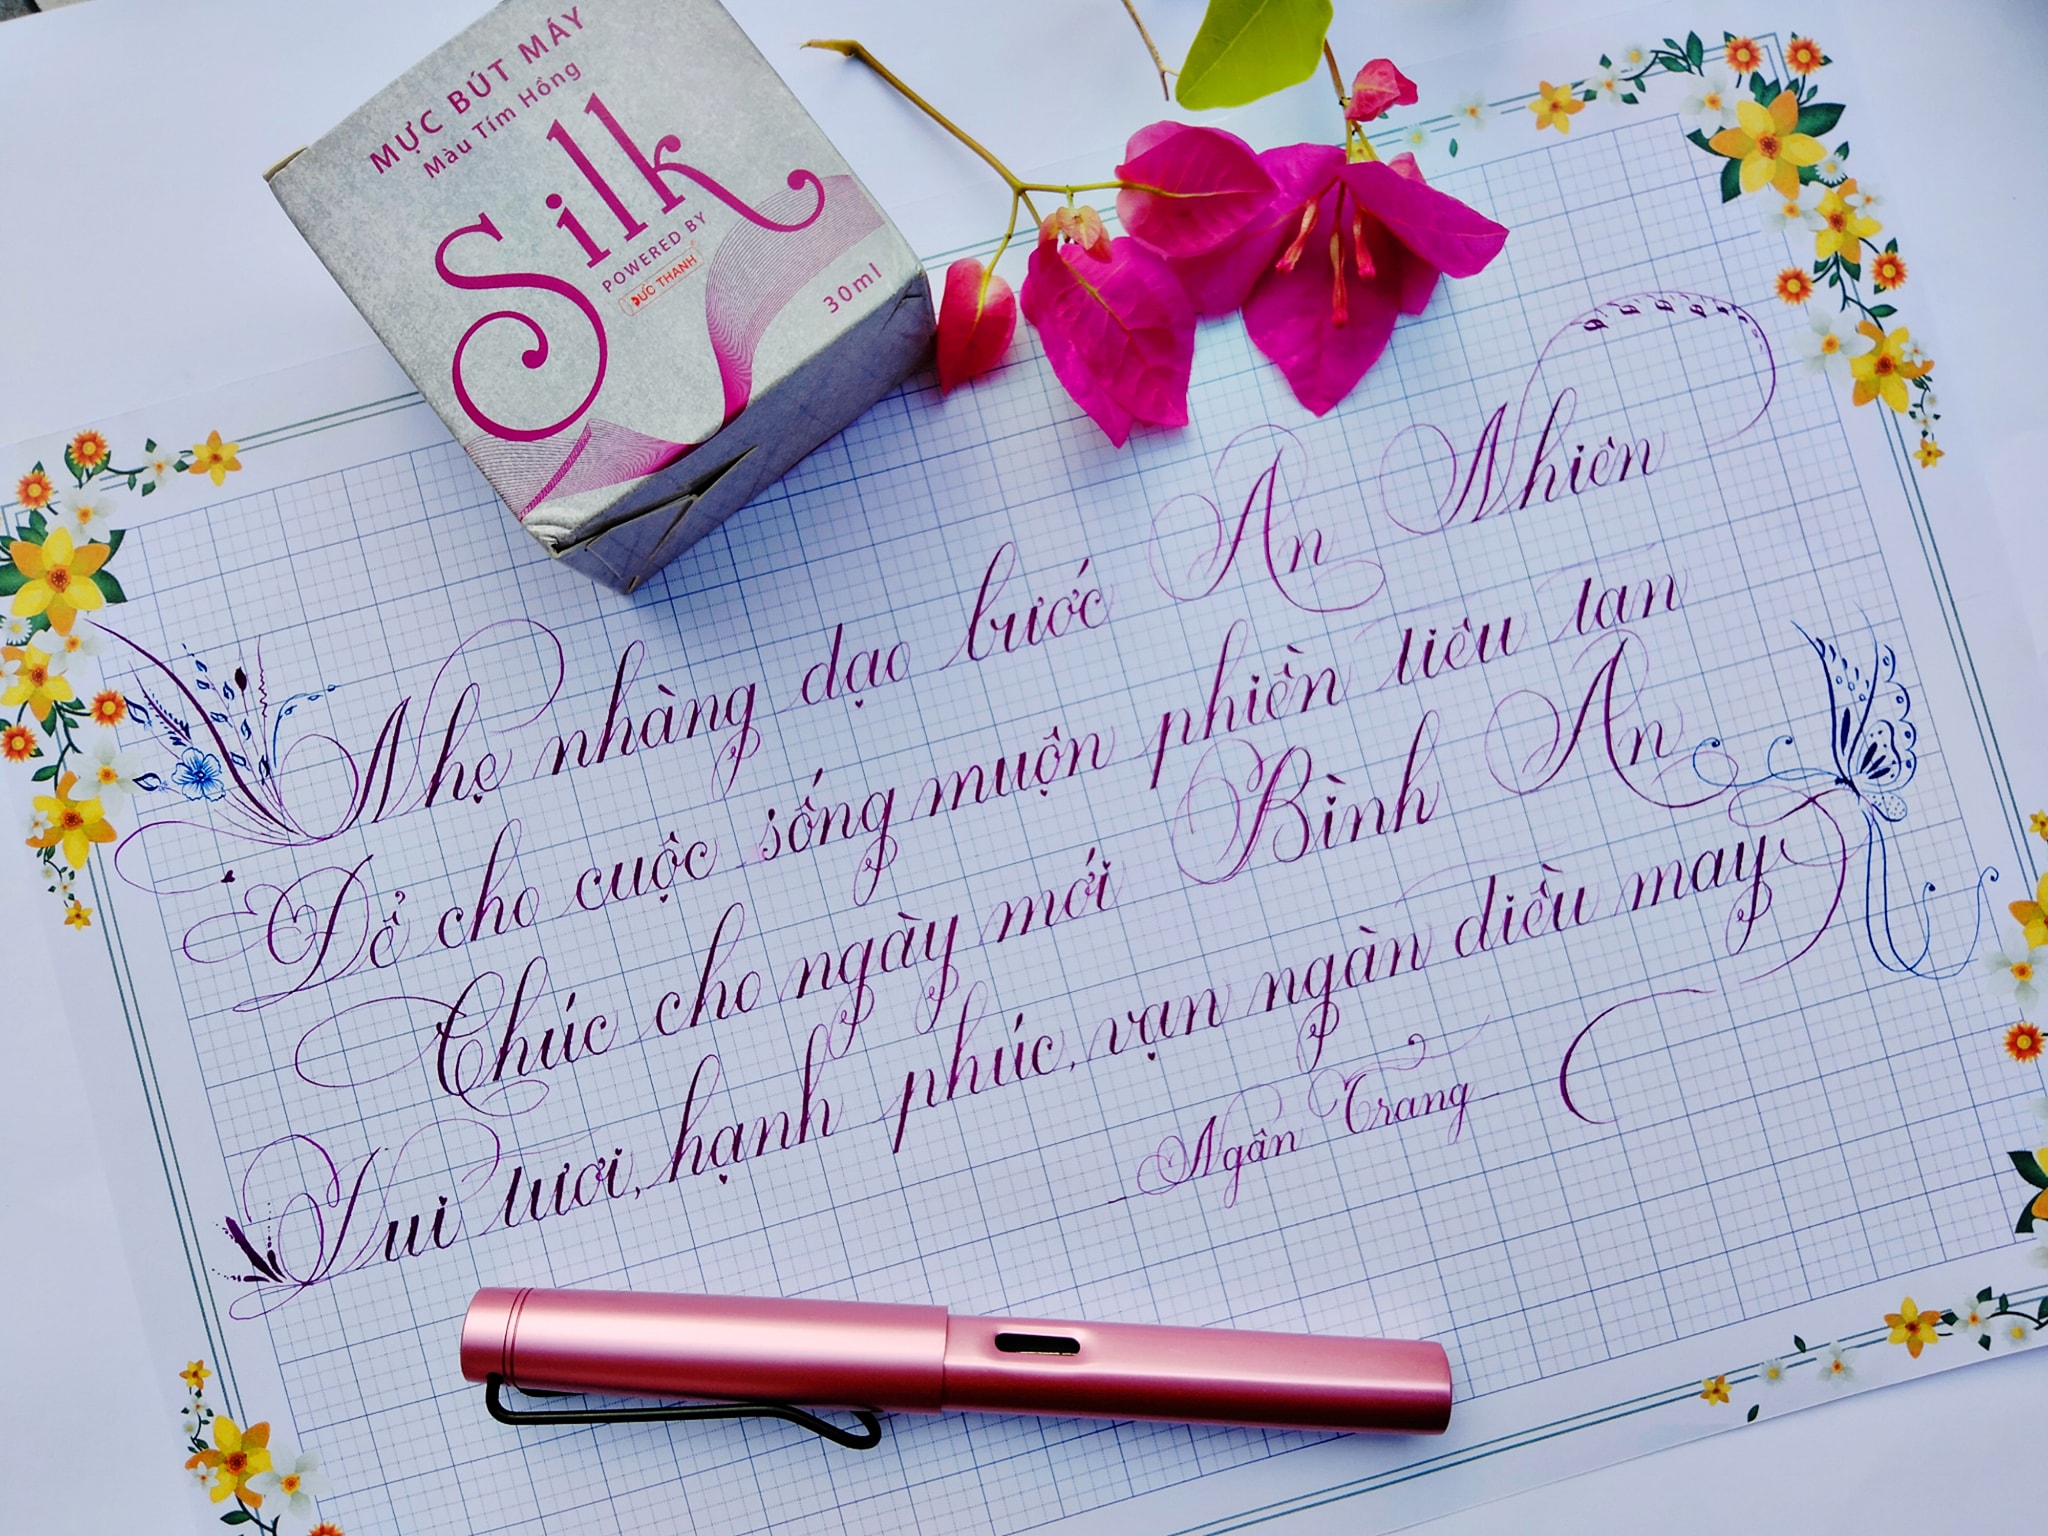 MỰC BÚT MÁY
Màu Tím Hồng
Silk
POWERED BY
ĐỨC THANH
30ml
Nhẹ nhàng dạo bước An Nhiên
Để cho cuộc sống muộn phiền tiêu tan
Chúc cho ngày mới Bình An
Vui tươi, hạnh phúc, vạn ngàn điều may
Ngân Trang